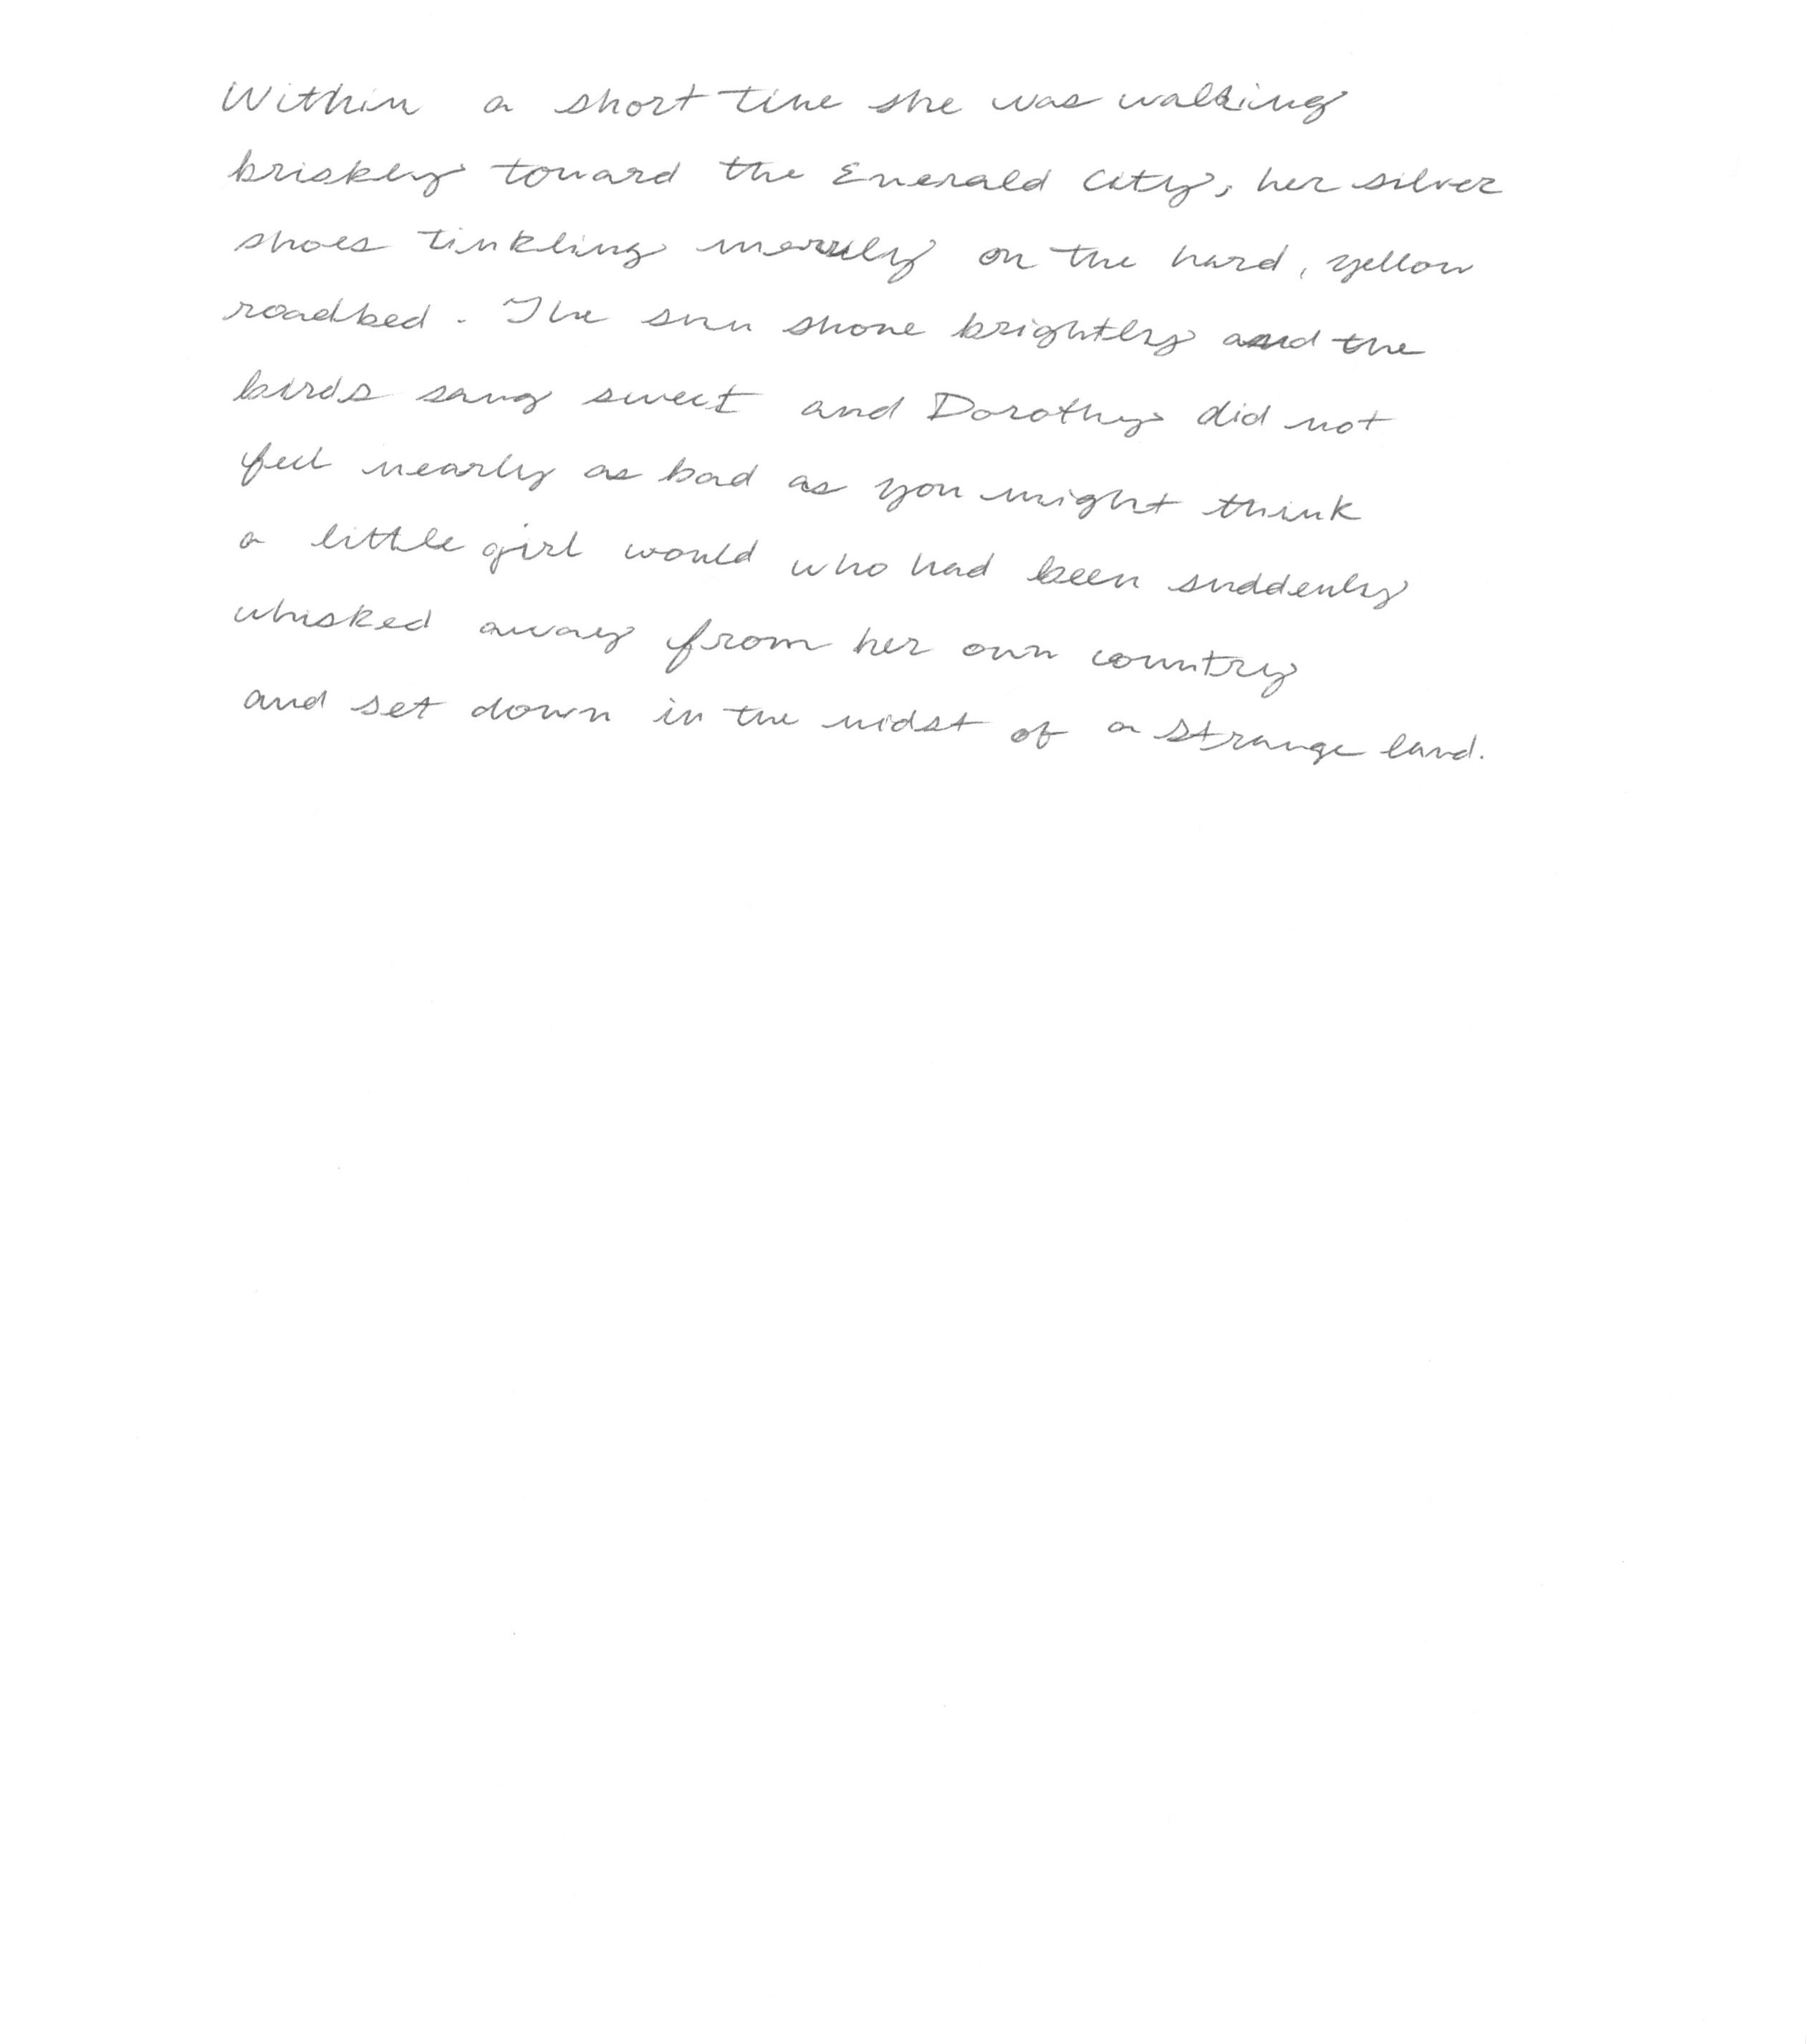 Within a short time she was walking
briskly toward the Emerald City, her silver
shoes tinkling merrily on the hard, yellow
roadbed. The sun shone brightly and the
birds sang sweet and Dorothy did not
feel nearly as bad as you might think
a little girl would who had been suddenly
whisked away from her own country
and set down in the midst of a strange land.